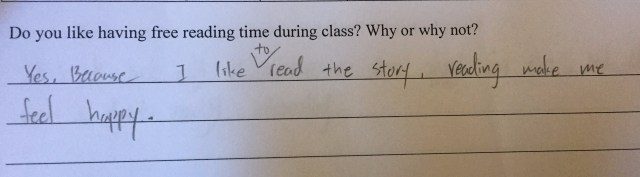 Do you like having free reading time during class? Why or why not?
Yes. Because I like to read the story, reading make me
feel happy.